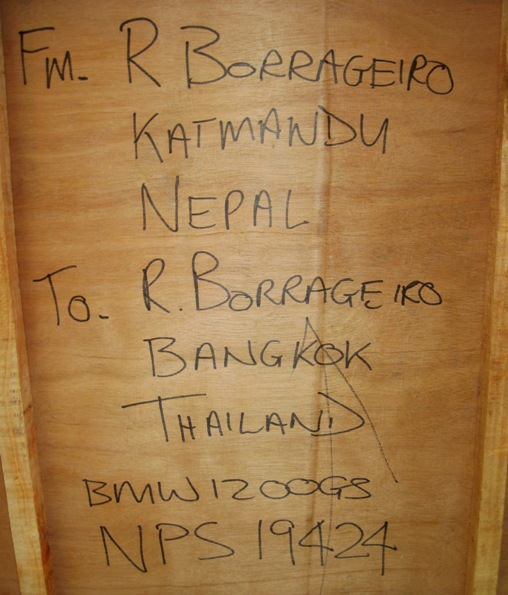 Fm. R BORRAGEIRO
KATMANDU
NEPAL
To. R. BORRAGEIRO
BANGKOK
THAILAND
BMW 1200GS
NPS 19424